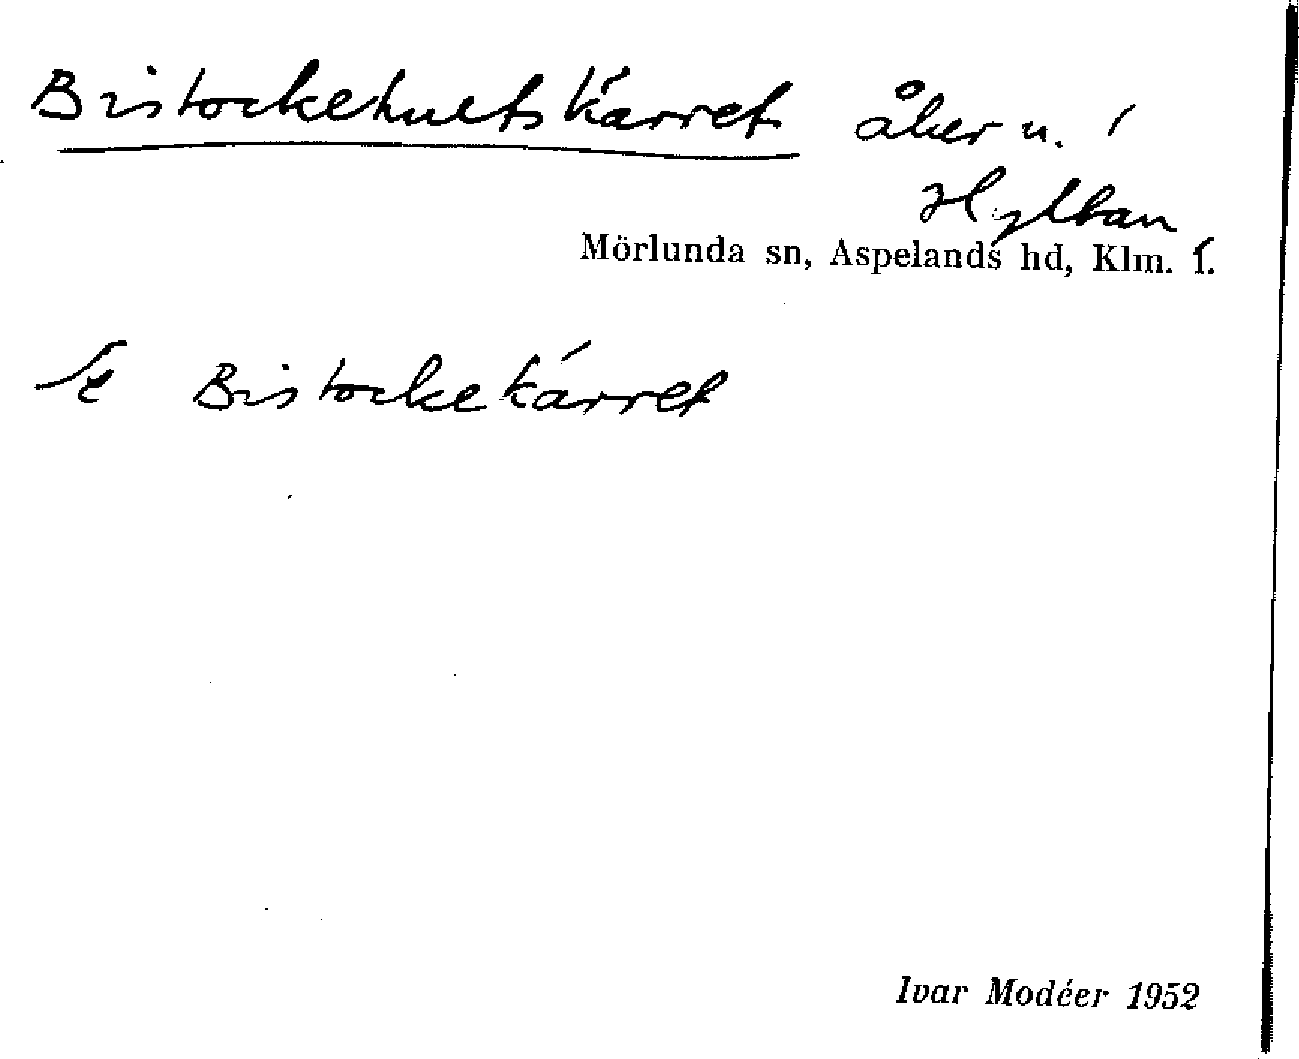 Bistockehultskärret åker u. i
Hyltan
Mörlunda sn, Aspelands hd, Klm. l.
Se Bistockekärret
Ivar Modéer 1952